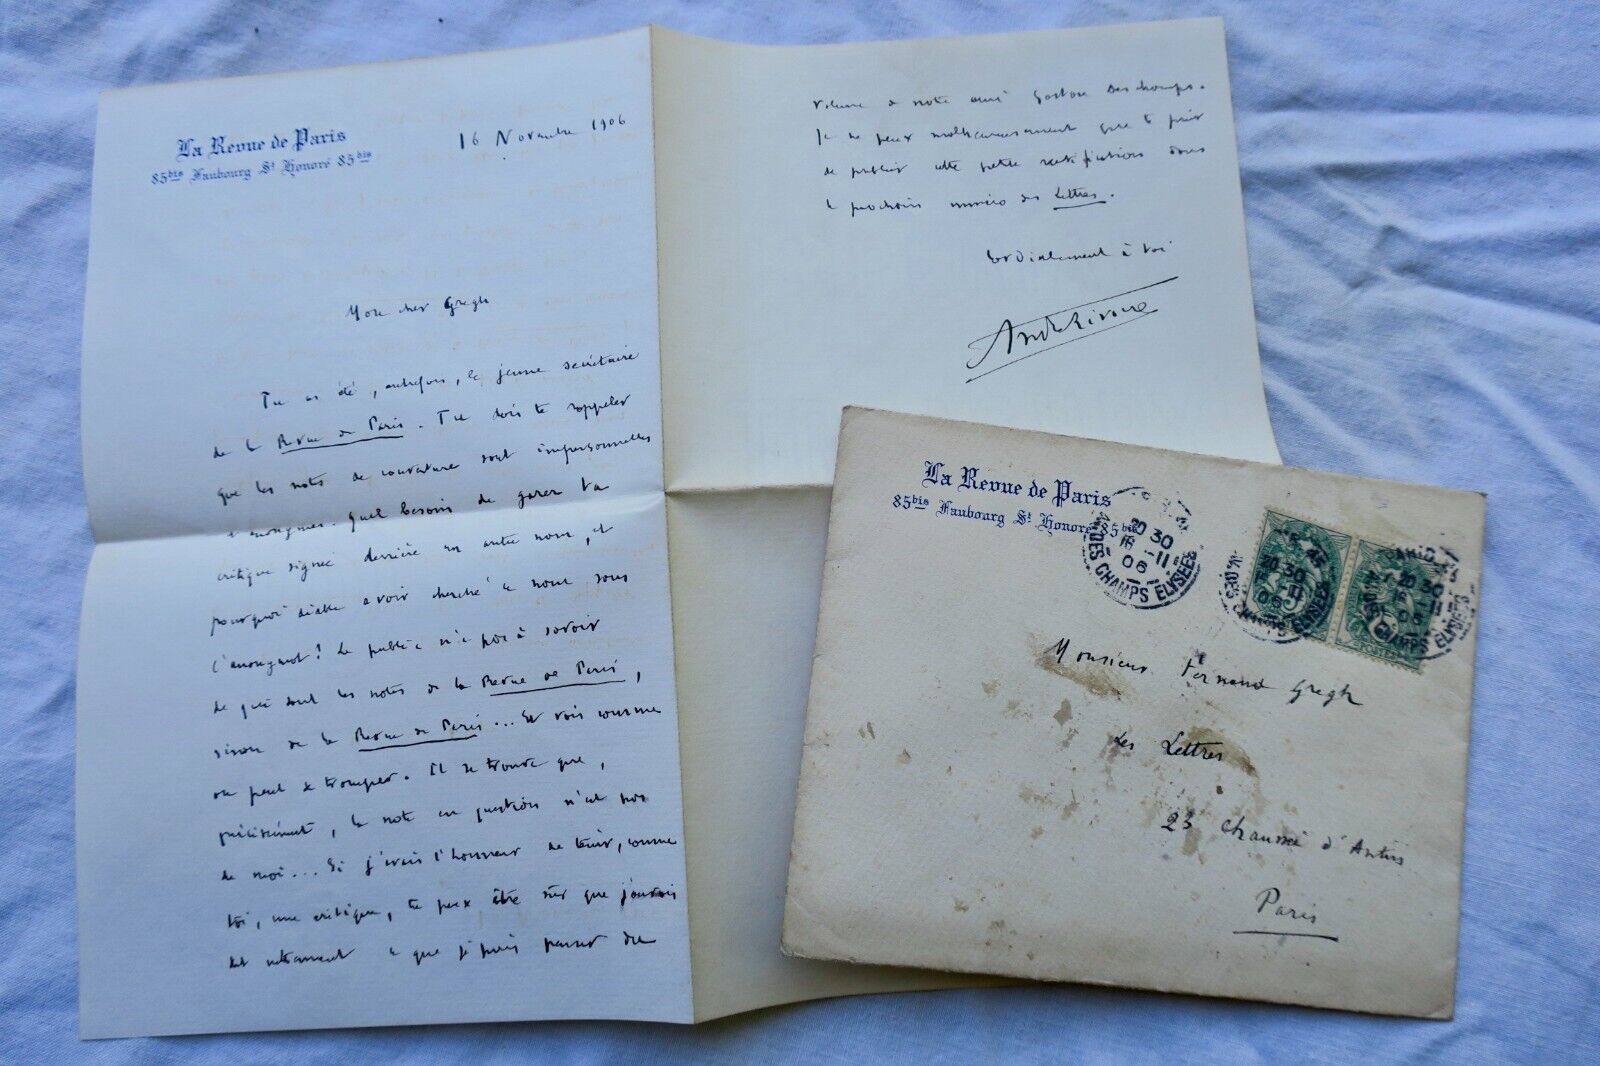 La Revue de Paris
85bis Faubourg St Honoré 85bis
16 Novembre 1906
Mon cher Gregh
Tu as été, autrefois, le jeune secrétaire
de la Revue de Paris. Tu dois te rappeler
que les notes de couverture sont impersonnelles
et anonymes. Quel besoin de garer ta
critique signée derrière un autre nom, et
pourquoi diable avoir cherché à nous sous
l'anonymat? Le public n'a pas à savoir
de qui sont les notes de la Revue de Paris,
sinon de la Revue de Paris... Et vois comme
on peut se tromper. Il se trouve que,
précisément, la note en question n'est pas
de moi... Si j'avais l'honneur de tenir, comme
toi, une critique, tu peux être sûr que j'aurais
dit nettement ce que je puis penser du
volume de notre ami Gaston Deschamps.
Je ne peux malheureusement que te prier
de publier cette petite rectification dans
le prochain numéro des Lettres.
Cordialement à toi
André Rivoire
La Revue de Paris
85bis Faubourg St Honoré 85bis
20 30
16 -11
06
DES CHAMPS ELYSEES
Monsieur Fernand Gregh
Les Lettres
23 Chaussée d'Antin
Paris